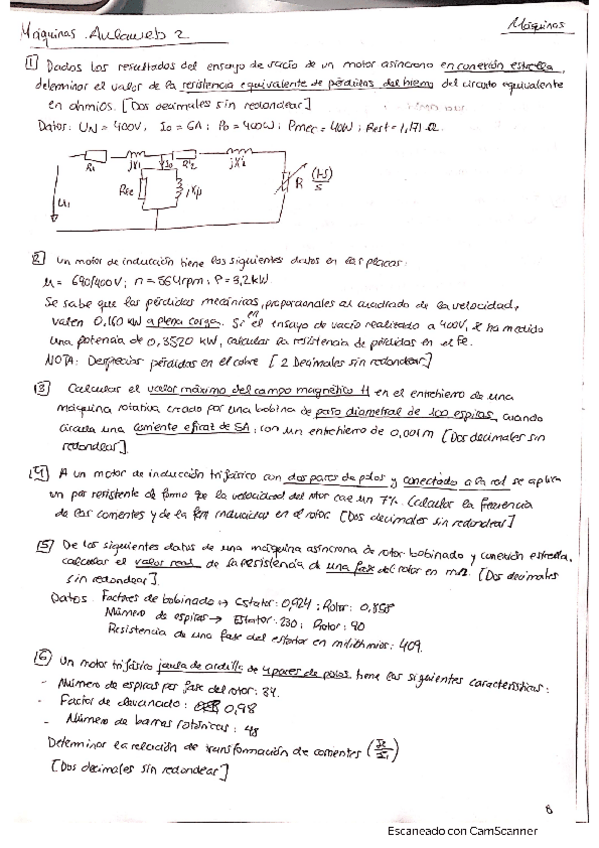 Máquinas Aulaweb 2
Máquinas
1 Dados los resultados del ensayo de vacío de un motor asíncrono en conexión estrella,
determinar el valor de la resistencia equivalente de pérdidas del hierro del circuito equivalente
en ohmios. [Dos decimales sin redondear]
Datos: UN = 400V, I0 = 6A; P0 = 400W; Pmec = 40W; Rest = 1,171 Ω
R1 jX1 I0 R'2 jX'2
RFe jXµ R (1-S)
S
U1
2 Un motor de inducción tiene los siguientes datos en las placas:
U = 690/400V; n = 564rpm; P = 3,2kW
Se sabe que las pérdidas mecánicas, proporcionales al cuadrado de la velocidad,
valen 0,160 kW a plena carga. Si en el ensayo de vacío realizado a 400V, se ha medido
una potencia de 0,3520 kW, calcular la resistencia de pérdidas en el Fe.
NOTA: Despreciar pérdidas en el cobre [2 Decimales sin redondear]
3 Calcular el valor máximo del campo magnético H en el entrehierro de una
máquina rotativa creado por una bobina de paso diametral de 100 espiras, cuando
circula una corriente eficaz de 5A, con un entrehierro de 0,001m [Dos decimales sin
redondear]
4 A un motor de inducción trifásico con dos pares de polos y conectado a la red se aplica
un par resistente de forma que la velocidad del rotor cae un 7%. Calcular la frecuencia
de las corrientes y de la fem inducidas en el rotor. [Dos decimales sin redondear]
5 De los siguientes datos de una máquina asíncrona de rotor bobinado y conexión estrella,
calcular el valor real de la resistencia de una fase del rotor en mΩ. [Dos decimales
sin redondear].
Datos. Factores de bobinado → Estator: 0,924; Rotor: 0,858
Número de espiras → Estator: 230; Rotor: 90
Resistencia de una fase del estator en miliohmios: 409.
6 Un motor trifásico jaula de ardilla de 4 pares de polos tiene las siguientes características:
- Número de espiras por fase del rotor: 34.
- Factor de devanado: 0,98
- Número de barras rotóricas: 48
Determinar la relación de transformación de corrientes
[Dos decimales sin redondear]
8
Escaneado con CamScanner